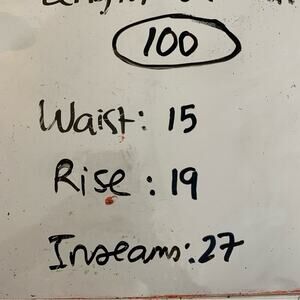 100
Waist: 15
Rise: 19
Inseams: 27